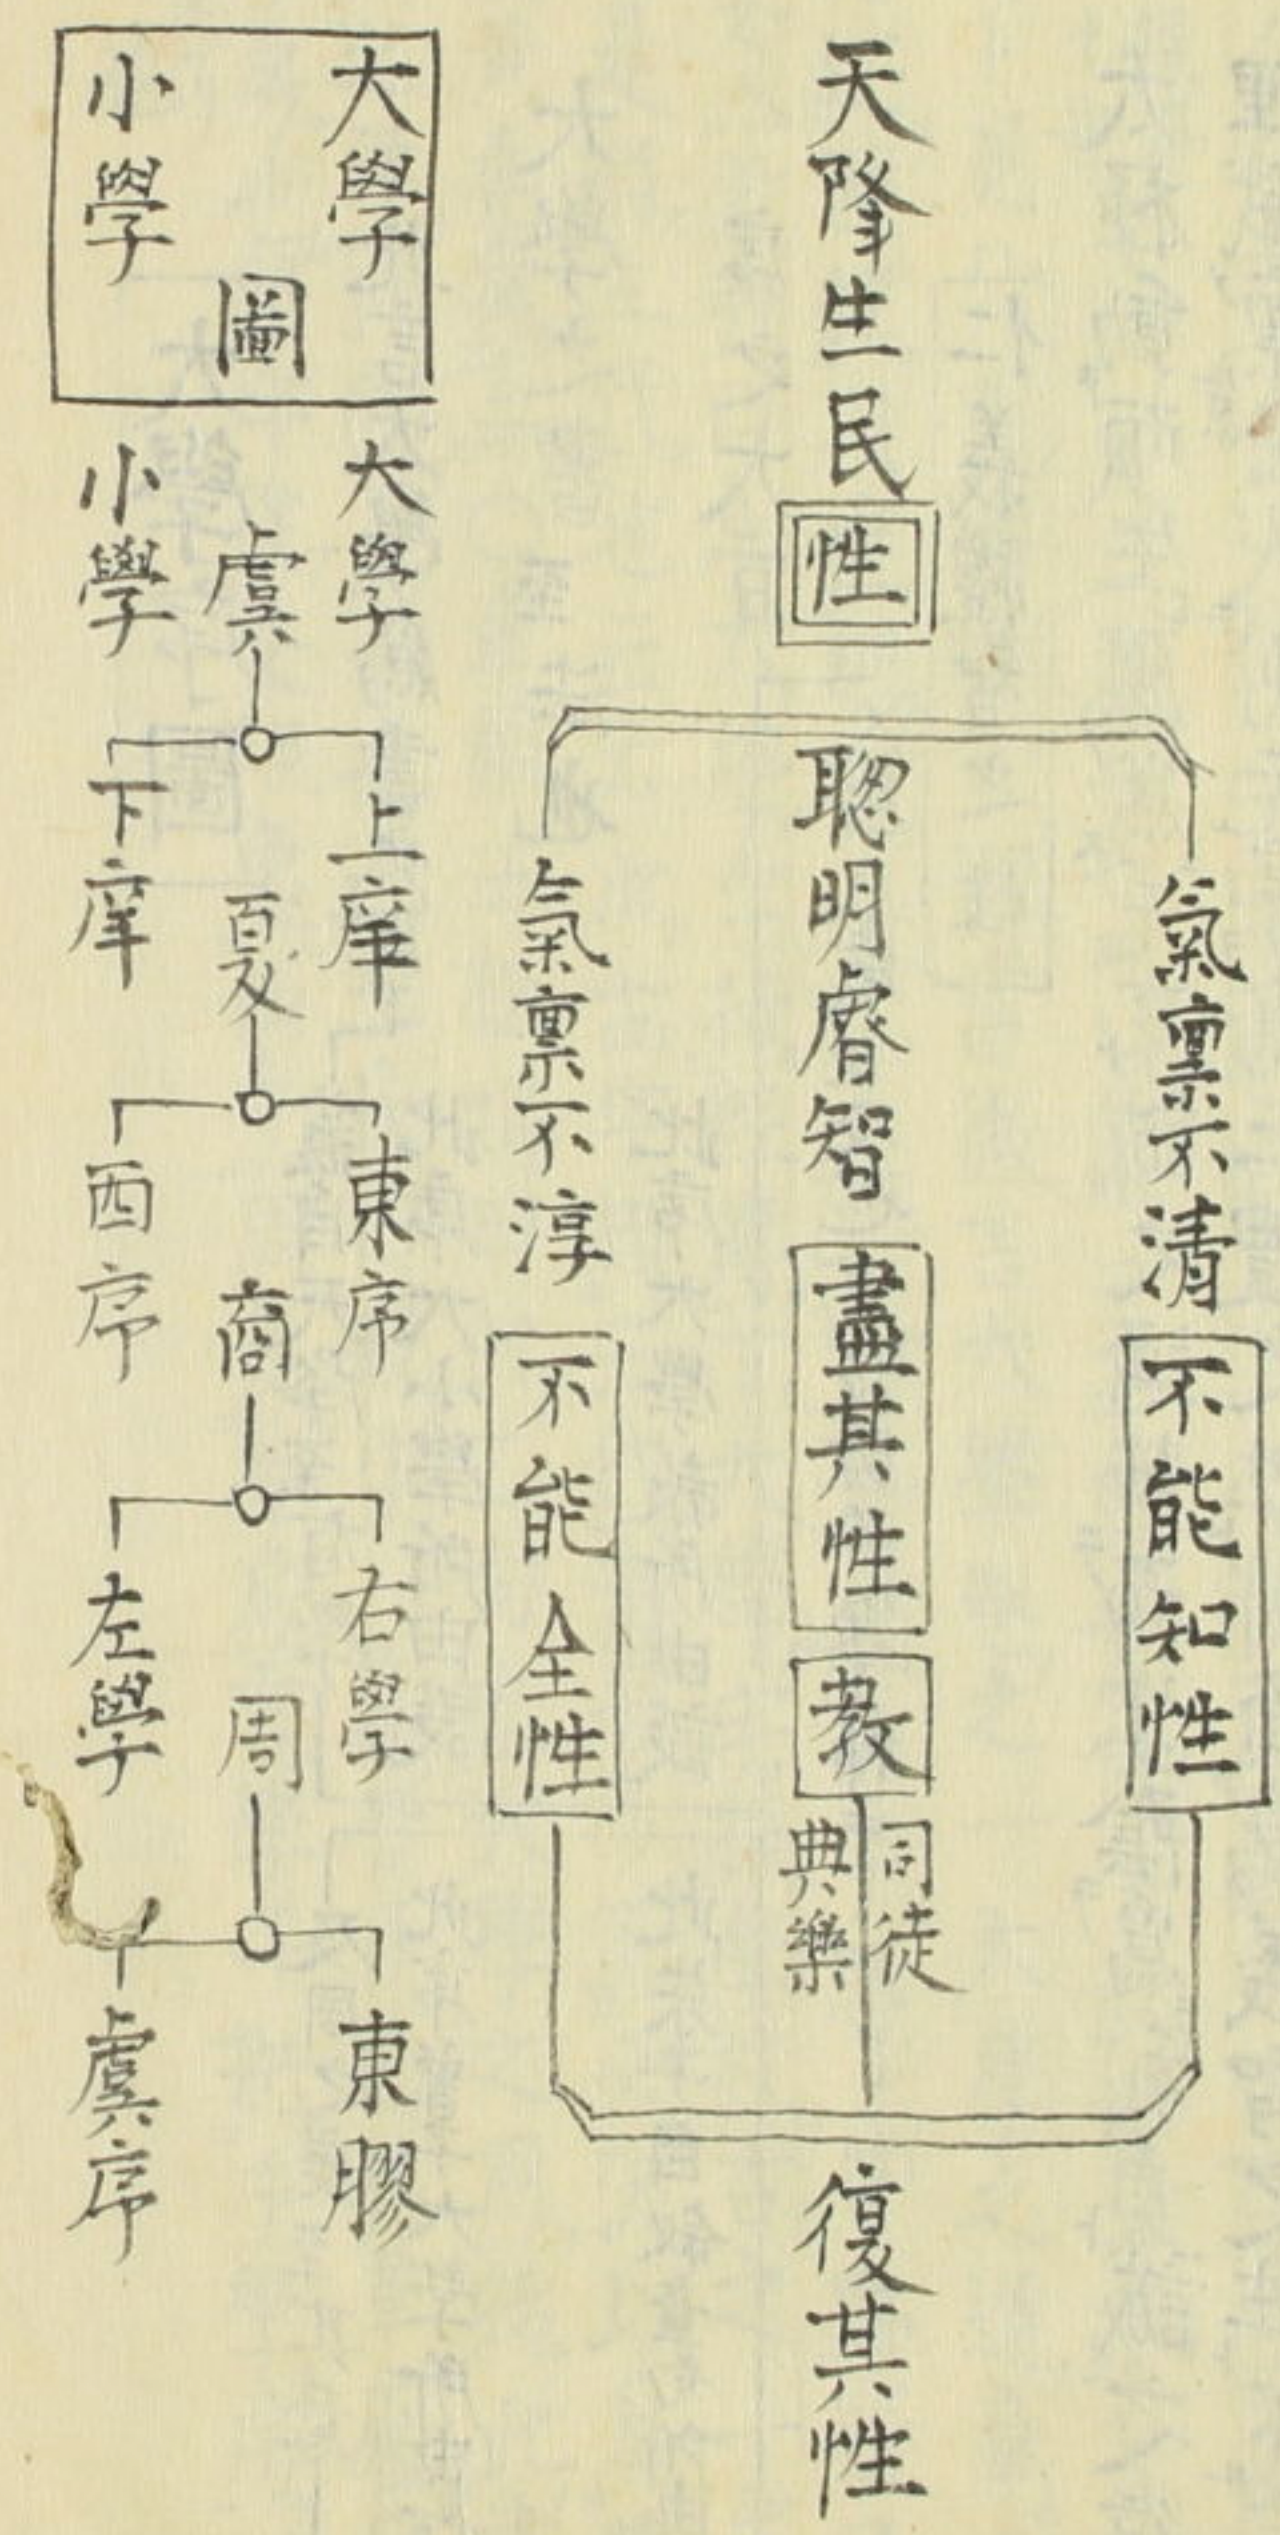 天降生民
性
氣禀不清
不能知性
聦明睿智
盡其性
教
司徒
典樂
氣禀不淳
不能全性
復其性
大學
小學
圖
大學
虞
小學
上庠
下庠
夏
東序
西序
商
右學
左學
周
東膠
虞序